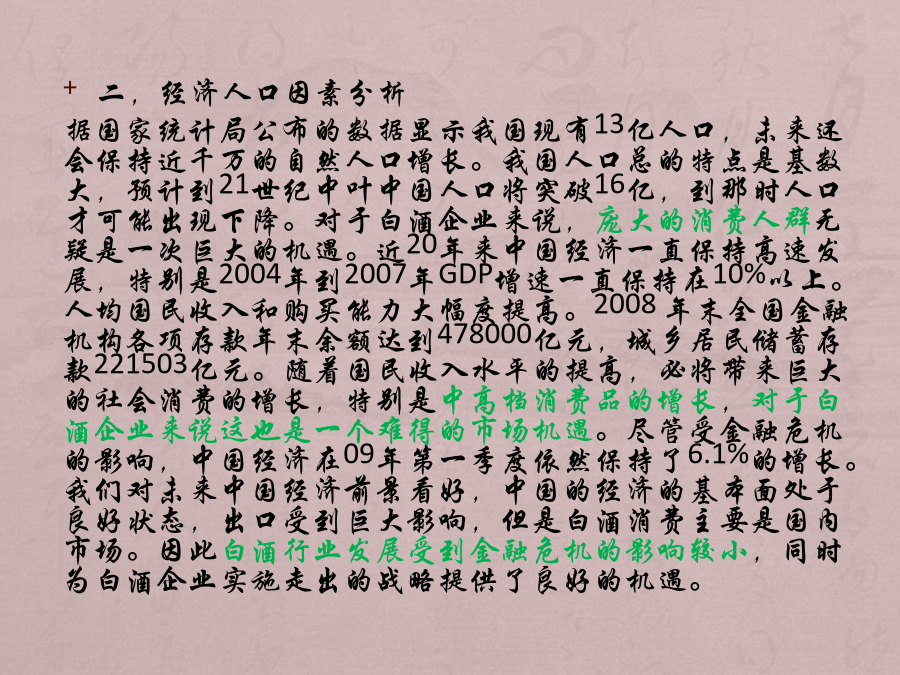 + 二，经济人口因素分析
据国家统计局公布的数据显示我国现有13亿人口，未来还
会保持近千万的自然人口增长。我国人口总的特点是基数
大，预计到21世纪中叶中国人口将突破16亿，到那时人口
才可能出现下降。对于白酒企业来说，庞大的消费人群无
疑是一次巨大的机遇。近20年来中国经济一直保持高速发
展，特别是2004年到2007年GDP增速一直保持在10%以上。
人均国民收入和购买能力大幅度提高。2008年末全国金融
机构各项存款年末余额达到478000亿元，城乡居民储蓄存
款221503亿元。随着国民收入水平的提高，必将带来巨大
的社会消费的增长，特别是中高档消费品的增长，对于白
酒企业来说这也是一个难得的市场机遇。尽管受金融危机
的影响，中国经济在09年第一季度依然保持了6.1%的增长。
我们对未来中国经济前景看好，中国的经济的基本面处于
良好状态，出口受到巨大影响，但是白酒消费主要是国内
市场。因此白酒行业发展受到金融危机的影响较小，同时
为白酒企业实施走出的战略提供了良好的机遇。